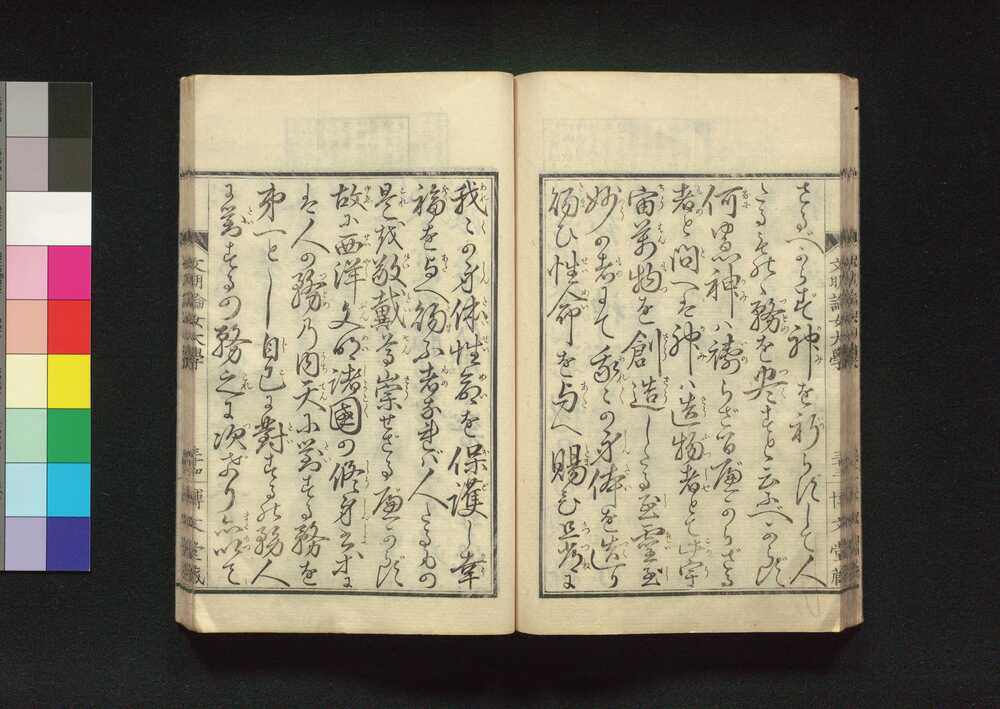 さるべからず神を祈らずして人
たるものゝ務を盡すと云ふべからず
何ゆゑ神ハ禱らざる可からざる
者と問へば神ハ造物者とて此宇
宙萬物を創造したる至靈至
妙の者にて我々の身体を造り
賜ひ性命を与へ賜ひ且常に
我々の身体性命を保護し幸
福を与へ賜ふ者なれバ人たるもの
是を敬戴尊崇せざる可からず
故に西洋文明諸國の修身書に
は人の務の内天に對する務を
第一とし自己に對する務人
に對するの務之に次げり
文明論女大學
博文堂藏
文明論女大學
博文堂藏